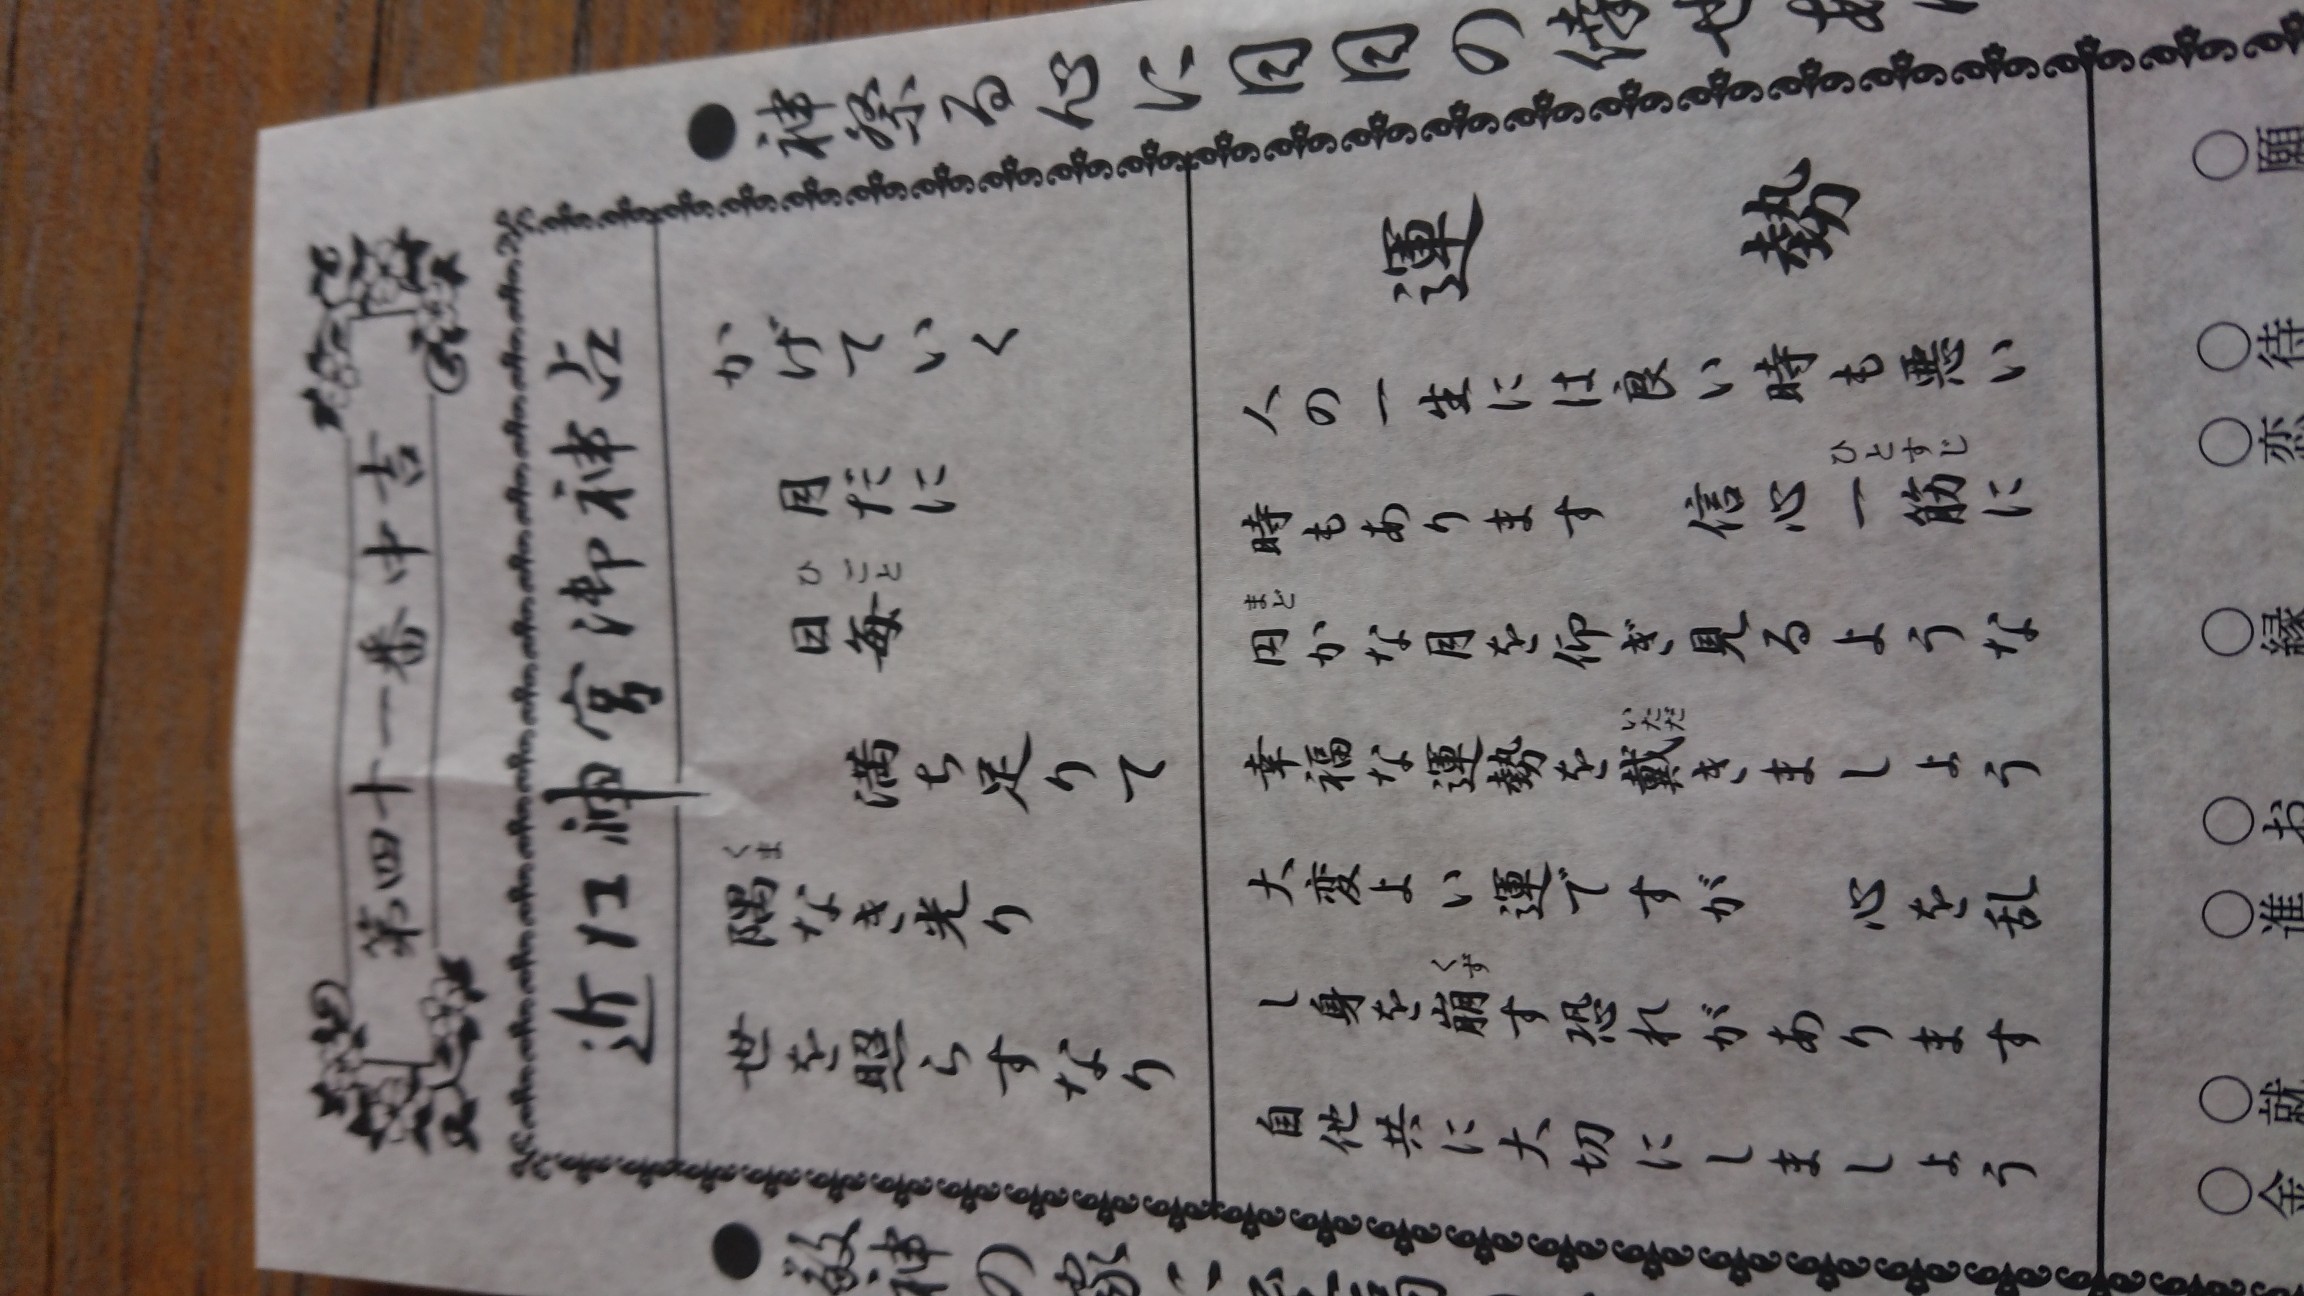 第四十一番 中吉
近江神宮御神占
●神祭る心に日日の
かげていく
月だに
日毎
ひ ごと
満ち足りて
隅なき光り
くま
世を照らすなり
●敬神の家に
運勢
人の一生には良い時も悪い
時もあります 信心一筋に
ひとすじ
円かな月を仰ぎ見るような
まど
幸福な運勢を戴きましょう
いただ
大変よい運ですが 心を乱
し身を崩す恐れがあります
くず
自他共に大切にしましょう
○願
○待
○恋
○縁
○お
○進
○就
○金